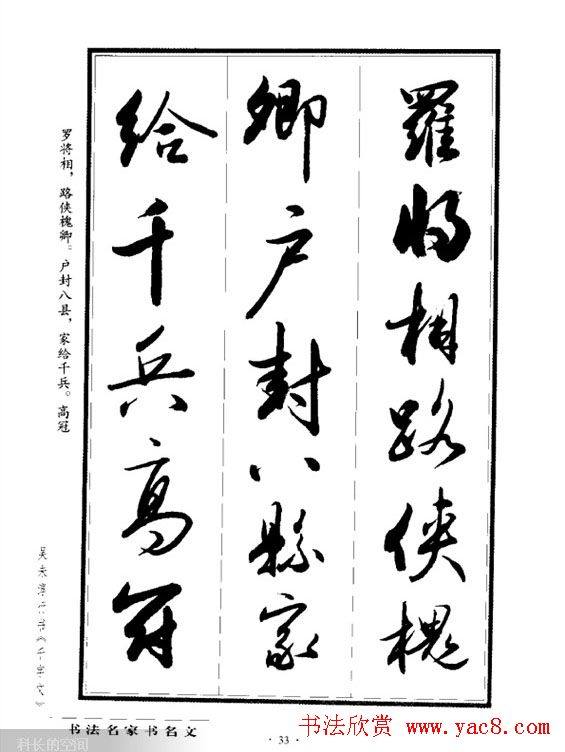 羅將相路俠槐
卿户封八縣家
給千兵高冠
罗将相，路侠槐卿。户封八县，家给千兵。高冠
吴未淳行书《千字文》
书法名家书名文
· 33 ·
书法欣赏 www.yac8.com
科长的空间